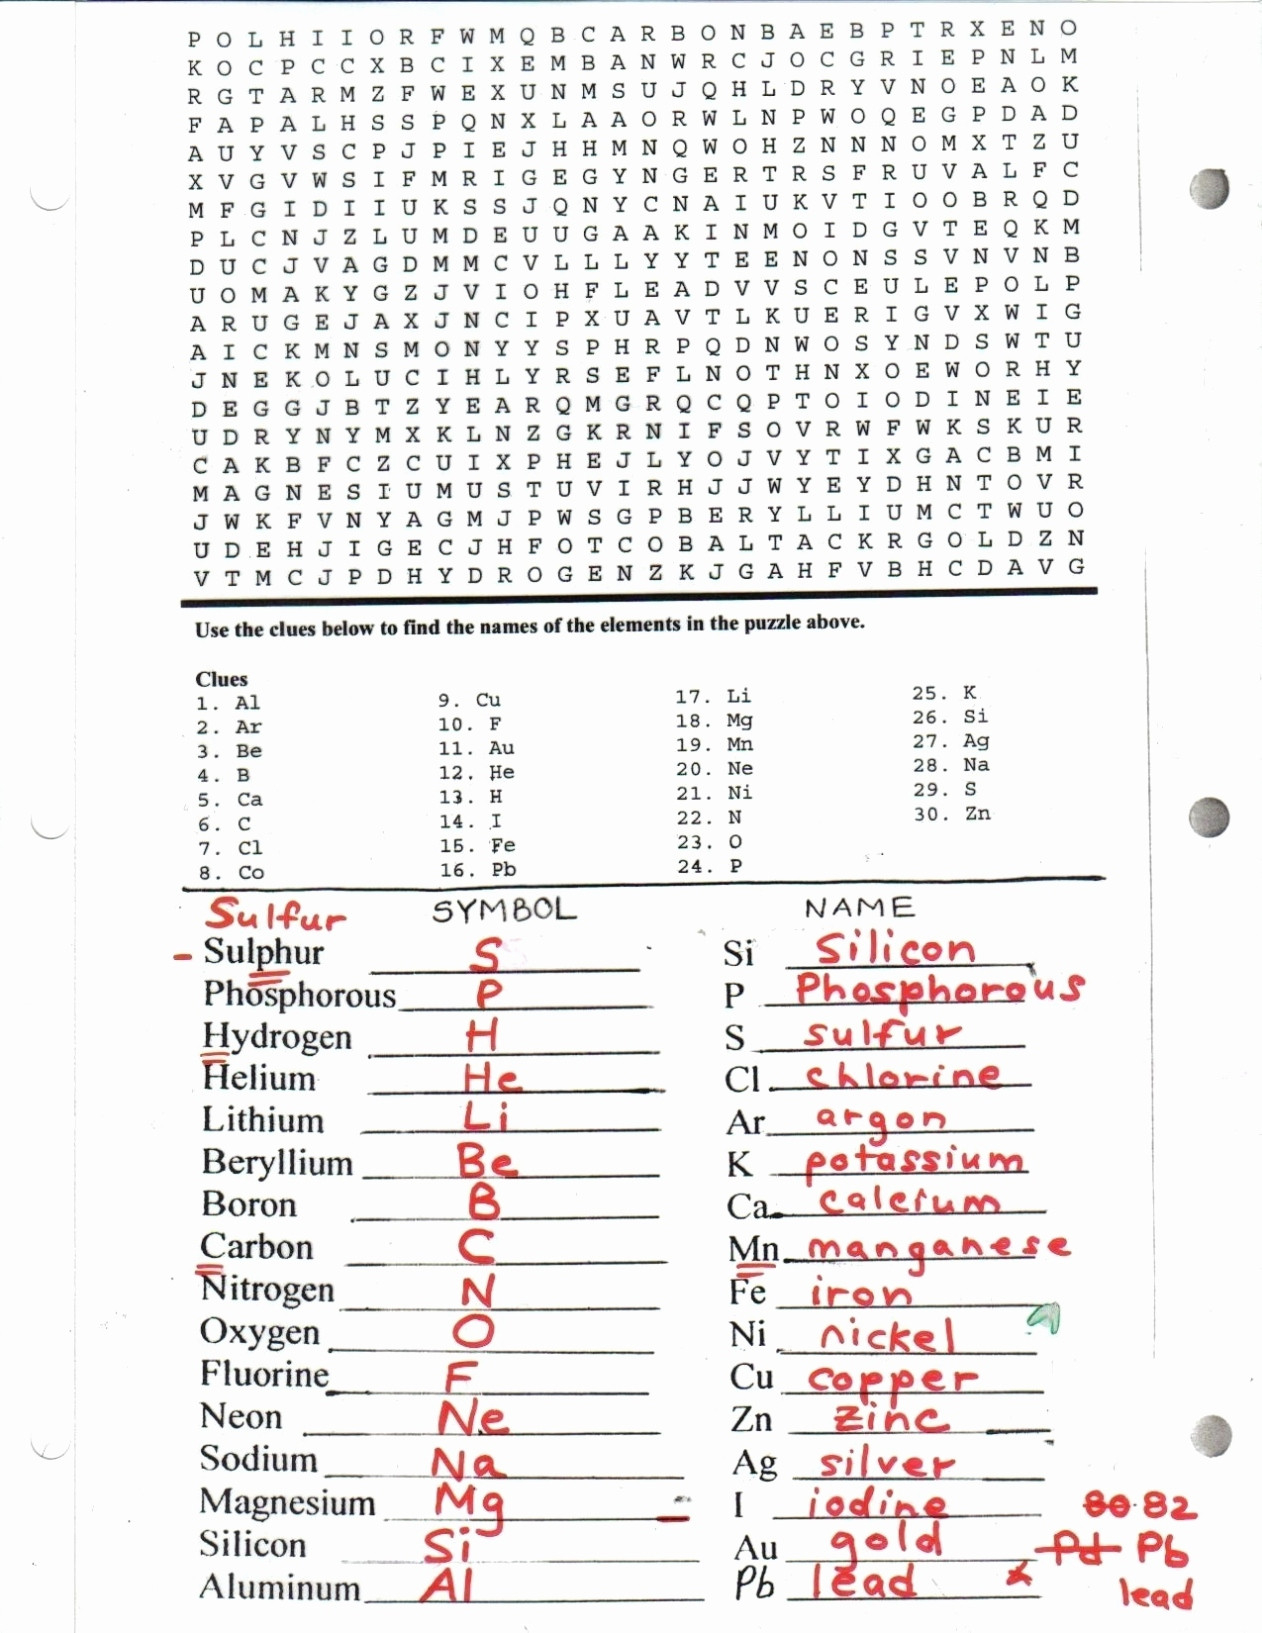 P O L H I I O R F W M Q B C A R B O N B A E B P T R X E N O
K O C P C C X B C I X E M B A N W R C J O C G R I E P N L M
R G T A R M Z F W E X U N M S U J Q H L D R Y V N O E A O K
F A P A L H S S P Q N X L A A O R W L N P W O Q E G P D A D
A U Y V S C P J P I E J H H M N Q W O H Z N N N O M X T Z U
X V G V W S I F M R I G E G Y N G E R T R S F R U V A L F C
M F G I D I I U K S S J Q N Y C N A I U K V T I O O B R Q D
P L C N J Z L U M D E U U G A A K I N M O I D G V T E Q K M
D U C J V A G D M M C V L L L Y Y T E E N O N S S V N V N B
U O M A K Y G Z J V I O H F L E A D V V S C E U L E P O L P
A R U G E J A X J N C I P X U A V T L K U E R I G V X W I G
A I C K M N S M O N Y Y S P H R P Q D N W O S Y N D S W T U
J N E K O L U C I H L Y R S E F L N O T H N X O E W O R H Y
D E G G J B T Z Y E A R Q M G R Q C Q P T O I O D I N E I E
U D R Y N Y M X K L N Z G K R N I F S O V R W F W K S K U R
C A K B F C Z C U I X P H E J L Y O J V Y T I X G A C B M I
M A G N E S I U M U S T U V I R H J J W Y E Y D H N T O V R
J W K F V N Y A G M J P W S G P B E R Y L L I U M C T W U O
U D E H J I G E C J H F O T C O B A L T A C K R G O L D Z N
V T M C J P D H Y D R O G E N Z K J G A H F V B H C D A V G
Use the clues below to find the names of the elements in the puzzle above.
Clues
1. Al
2. Ar
3. Be
4. B
5. Ca
6. C
7. Cl
8. Co
9. Cu
10. F
11. Au
12. He
13. H
14. I
15. Fe
16. Pb
17. Li
18. Mg
19. Mn
20. Ne
21. Ni
22. N
23. O
24. P
25. K
26. Si
27. Ag
28. Na
29. S
30. Zn
SYMBOL
Sulfur
Sulphur S
Phosphorous P
Hydrogen H
Helium He
Lithium Li
Beryllium Be
Boron B
Carbon C
Nitrogen N
Oxygen O
Fluorine F
Neon Ne
Sodium Na
Magnesium Mg
Silicon Si
Aluminum Al
NAME
Si Silicon
P Phosphorous
S sulfur
Cl chlorine
Ar argon
K potassium
Ca calcium
Mn manganese
Fe iron
Ni nickel
Cu copper
Zn zinc
Ag silver
I iodine
Au gold
Pb lead
80 82
Pd Pb
lead